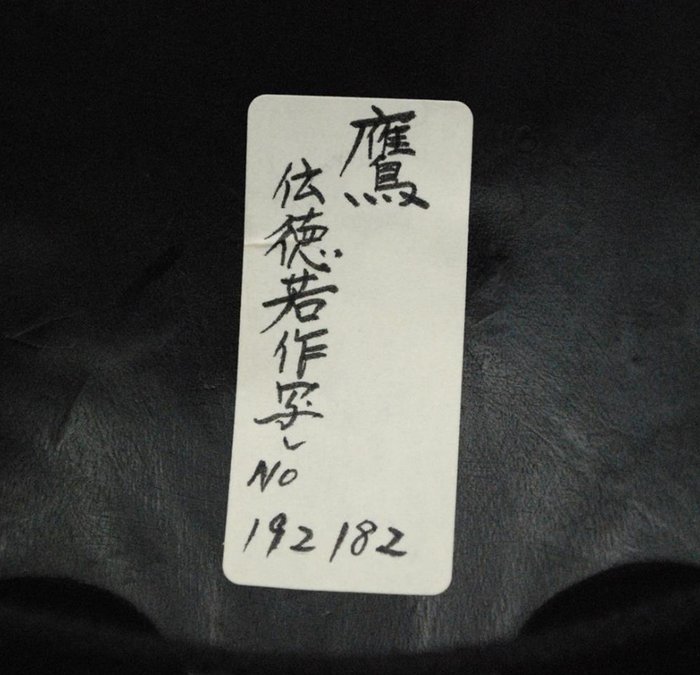 鷹
伝徳若作写し
NO
192 182